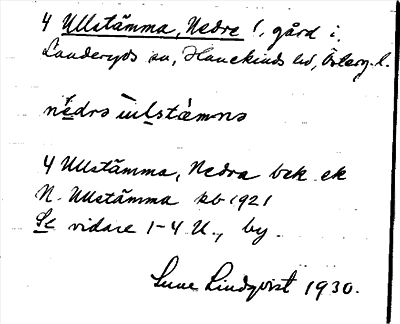 4 Ullstämma, Nedre !, gård i
Landeryds sn, Hanekinds hd, Österg. l.
nedrə ullstämnə
4 Ullstämma, Nedra bek ek
N. Ullstämma kb 1921
Se vidare 1-4 U., by.
Sune Lindqvist 1930.